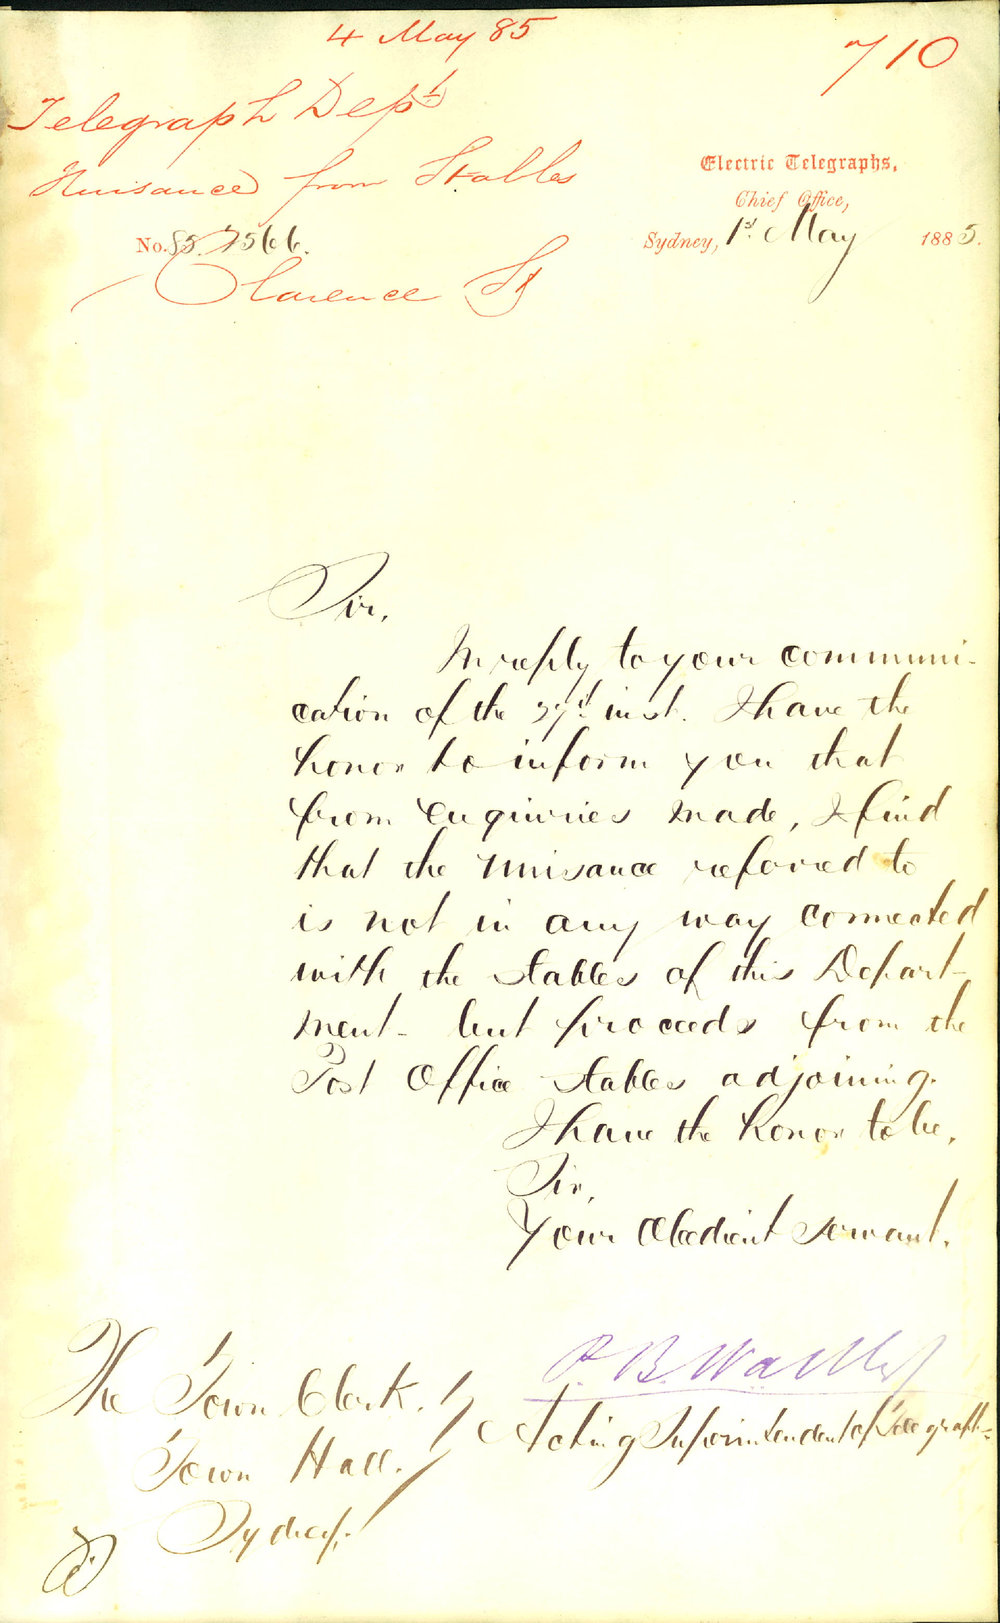 4 May 85
710
Telegraph Dept.
Nuisance from Stables
Clarence St
Electric Telegraphs,
Chief Office,
No. 85.7566.
Sydney, 1st May 1885.
Sir,
In reply to your communi-
cation of the 27th inst. I have the
honor to inform you that
from enquiries made, I find
that the nuisance referred to
is not in any way connected
with the stables of this Depart-
ment - but proceeds from the
Post Office stables adjoining.
I have the honor to be,
Sir,
Your Obedient Servant.
P. B. Walker
Acting Superintendent of Telegraphs
The Town Clerk.
Town Hall.
Sydney.